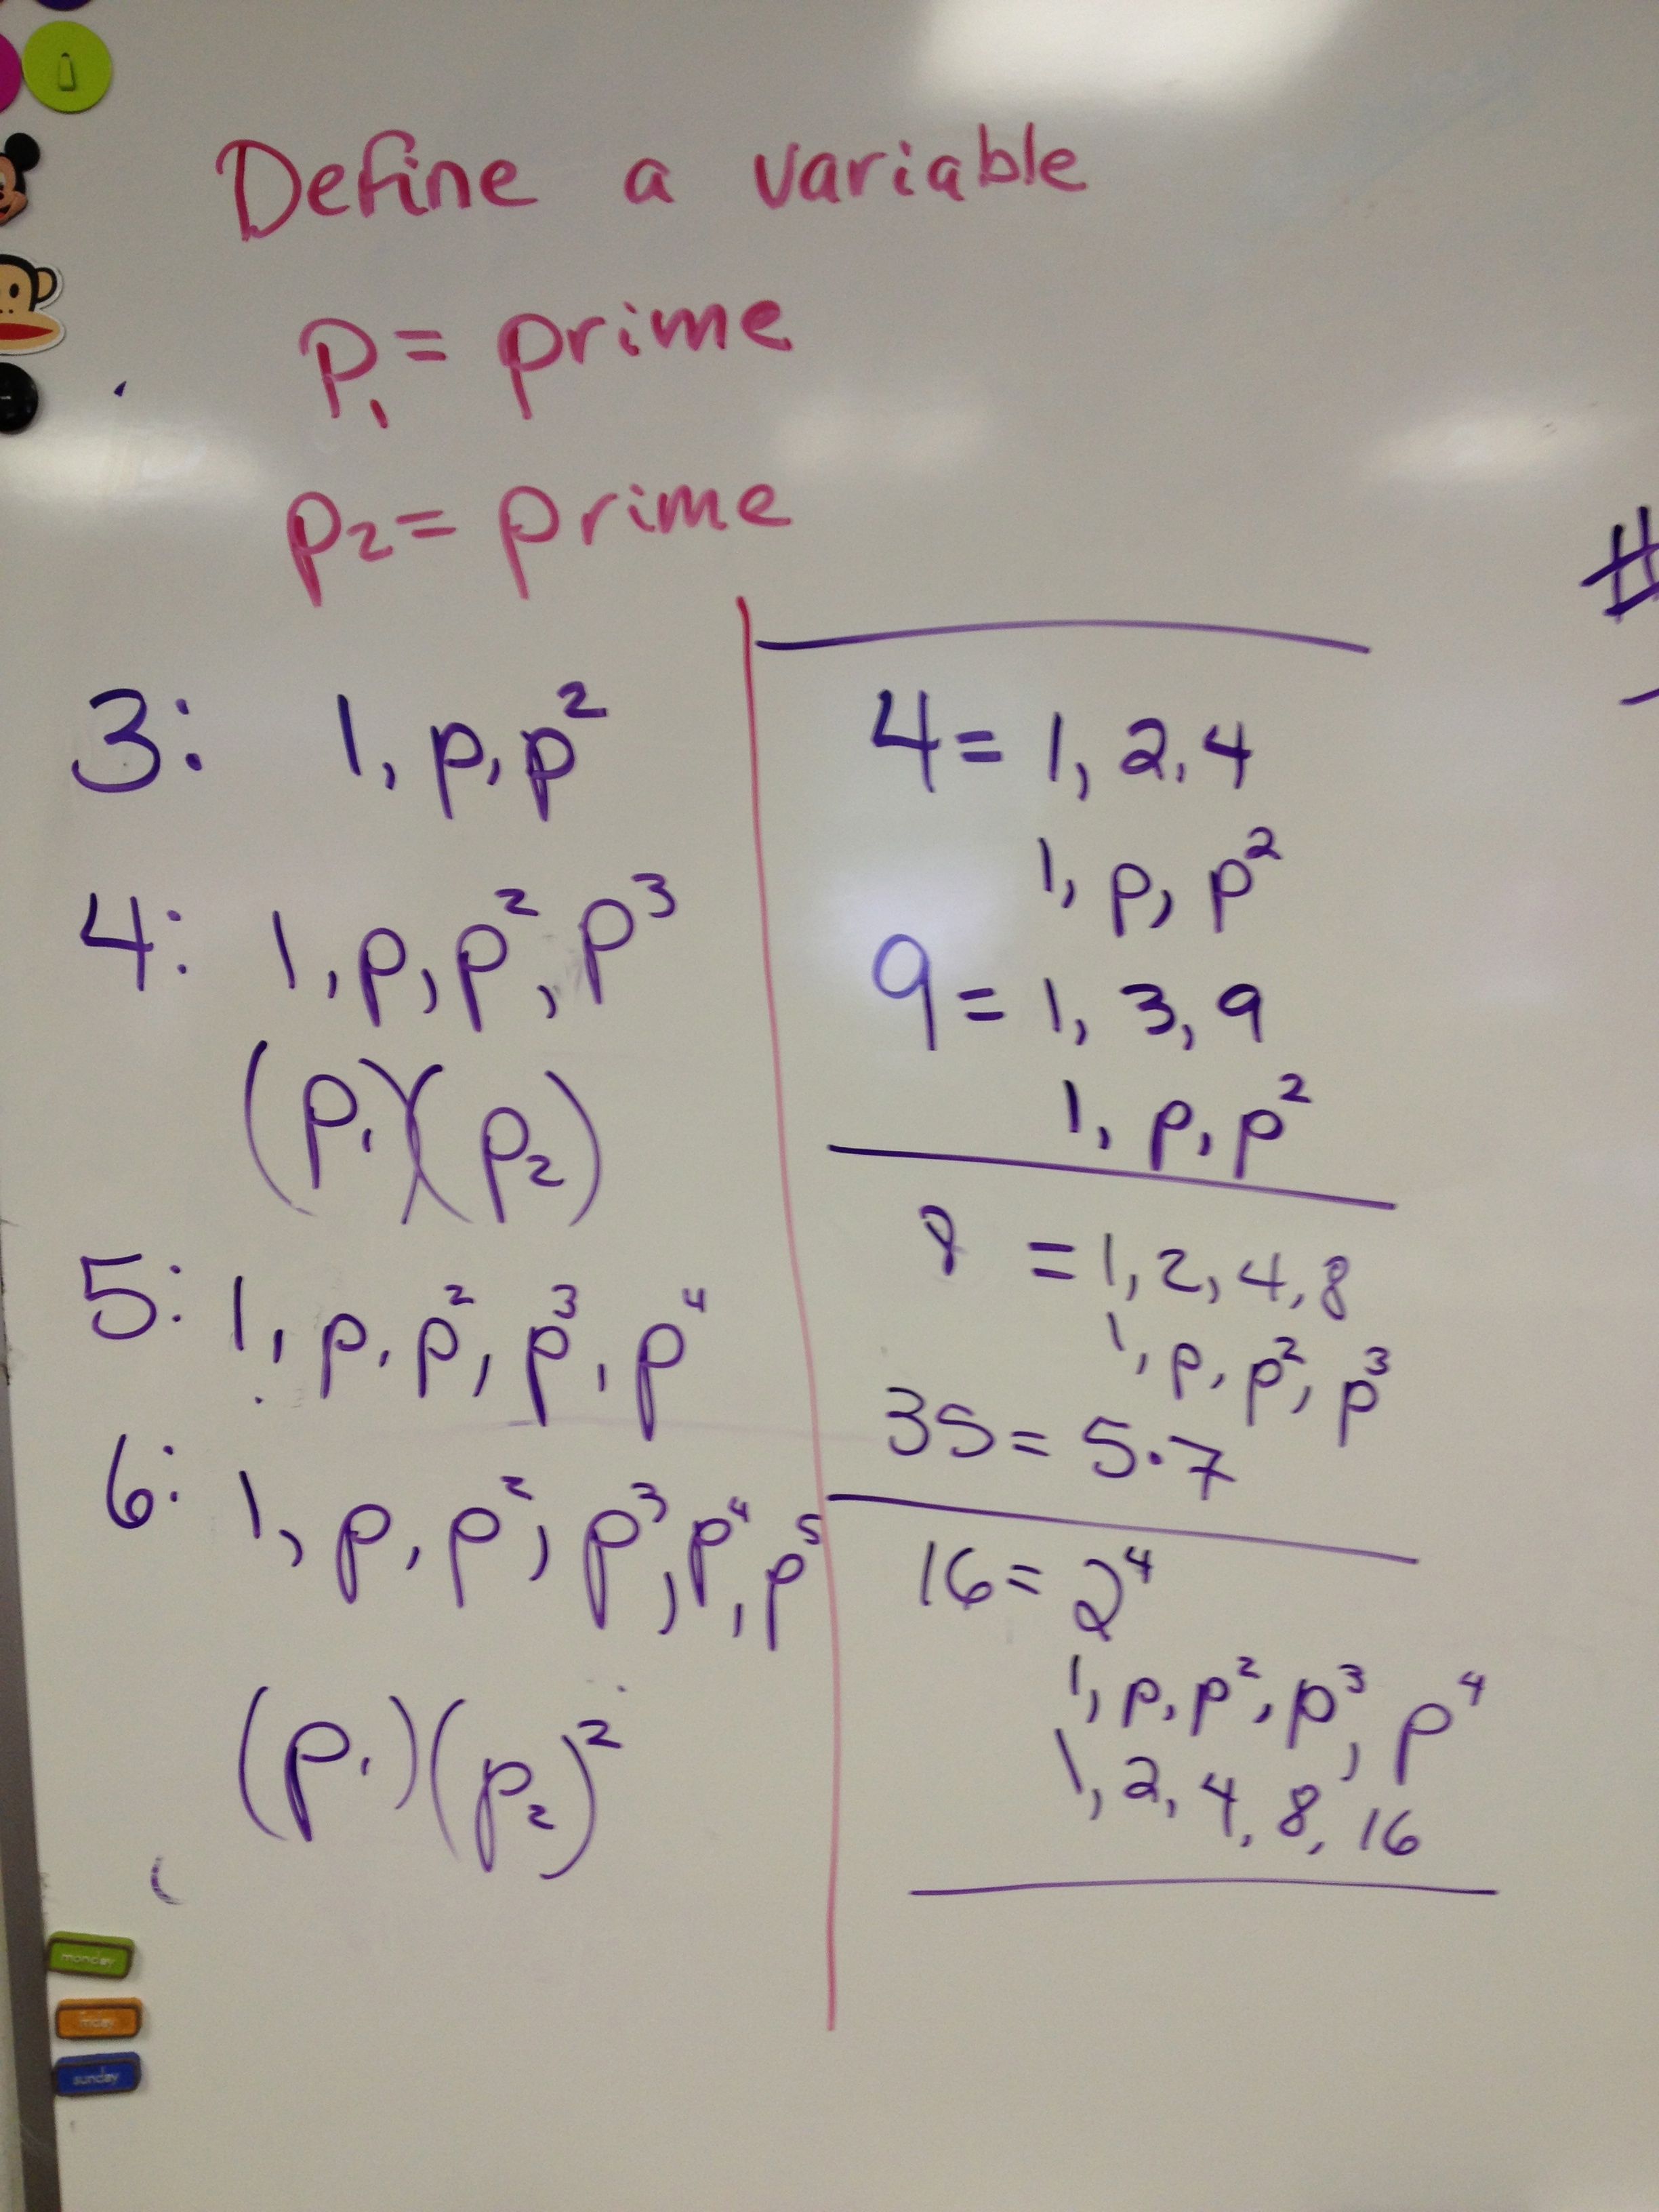 Define a variable
P₁ = prime
P₂ = prime
3: 1, p, p²
4: 1, p, p², p³
(p₁)(p₂)
5: 1, p, p², p³, p⁴
6: 1, p, p², p³, p⁴, p⁵
(p₁)(p₂)²
4 = 1, 2, 4
1, p, p²
9 = 1, 3, 9
1, p, p²
8 = 1, 2, 4, 8
1, p, p², p³
35 = 5·7
16 = 2⁴
1, p, p², p³, p⁴
1, 2, 4, 8, 16
#
monday
sunday